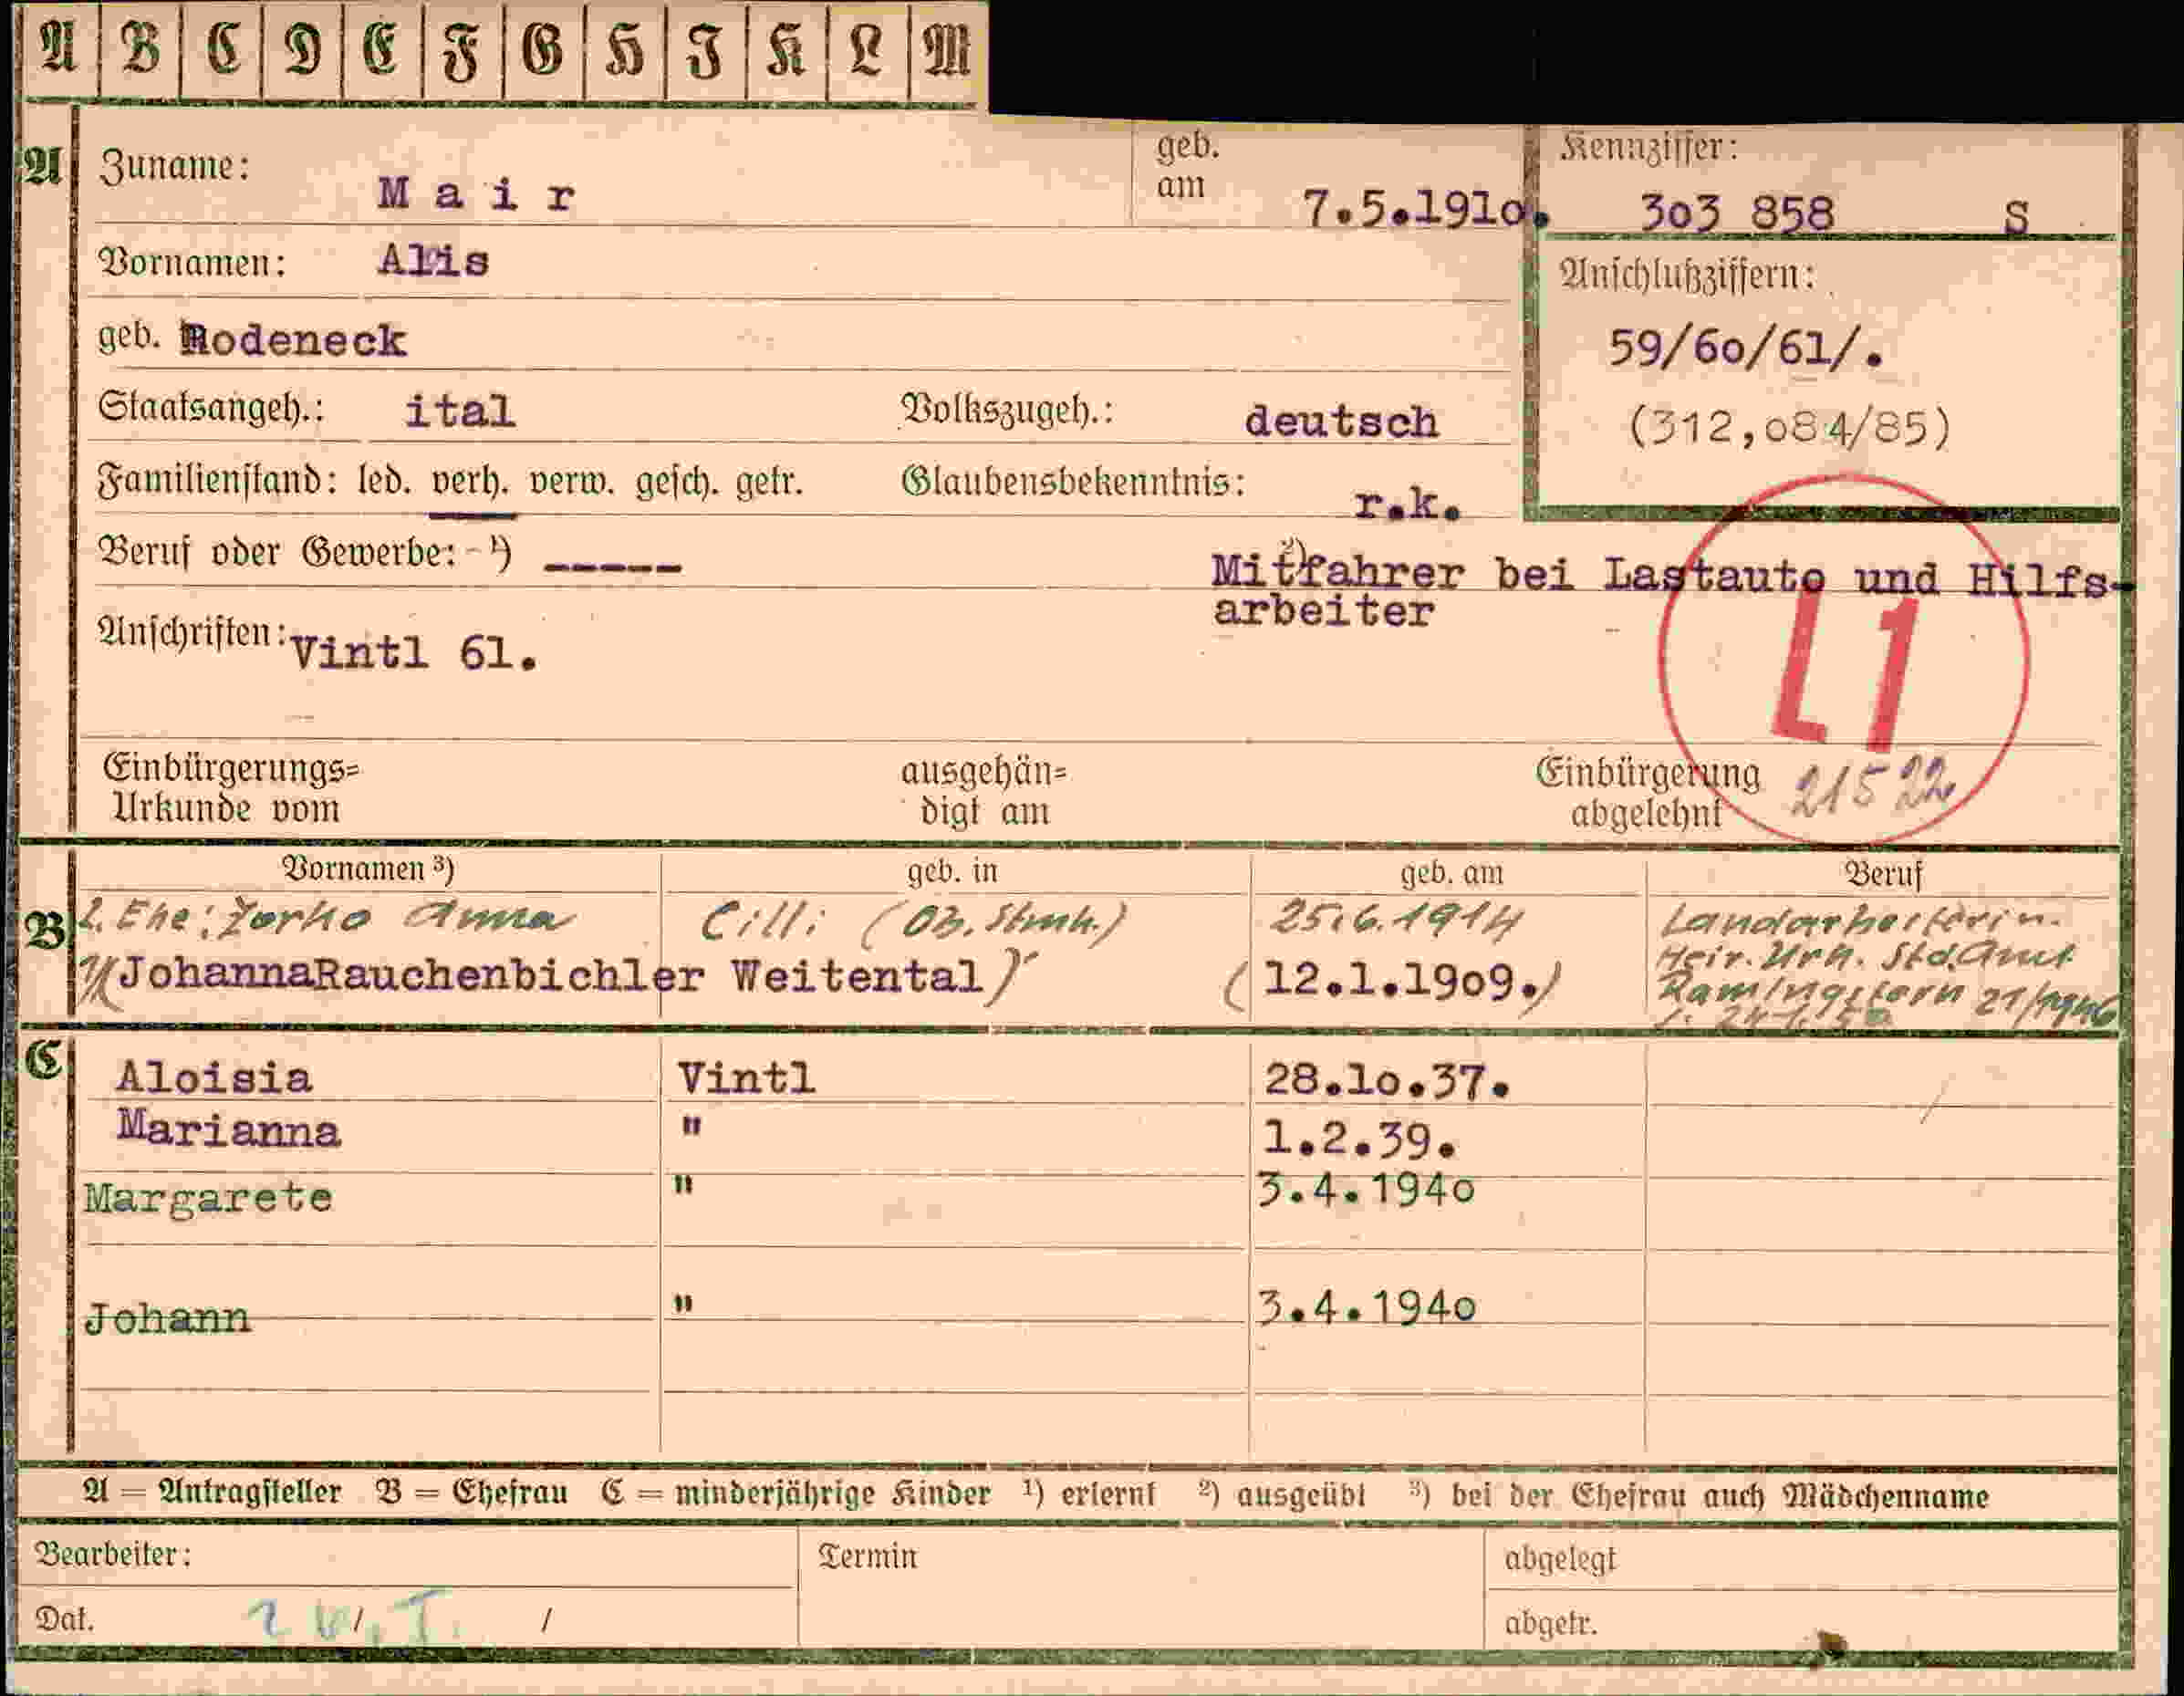 A B C D E F G H I K L M
A Zuname: Mair geb. am 7.5.191o. Kennziffer: 3o3 858 S
Vornamen: Alis Anschlußziffern:
geb. Rodeneck 59/6o/61/.
Staatsangeh.: ital Volkszugeh.: deutsch (312,o84/85)
Familienstand: led. verh. verw. gesch. getr. Glaubensbekenntnis: r.k.
Beruf oder Gewerbe: 1) ----- 2) Mitfahrer bei Lastauto und Hilfs-
arbeiter
Anschriften: Vintl 61.
L1
Einbürgerungs= ausgehän= Einbürgerung 21522
Urkunde vom digt am abgelehnt
Vornamen 3) geb. in geb. am Beruf
B 2. Ehe: Zorko Anna Cilli (Ob. Stmk.) 25.6.1914 Landarbeiterin.
Heir. Urk. Std. Amt
(JohannaRauchenbichler Weitental) (12.1.19o9.) Ramingstein 21/1946
C Aloisia Vintl 28.1o.37.
Marianna " 1.2.39.
Margarete " 3.4.194o
Johann " 3.4.194o
A = Antragsteller B = Ehefrau C = minderjährige Kinder 1) erlernt 2) ausgeübt 3) bei der Ehefrau auch Mädchenname
Bearbeiter: Termin abgelegt
Dat. / / abgetr.